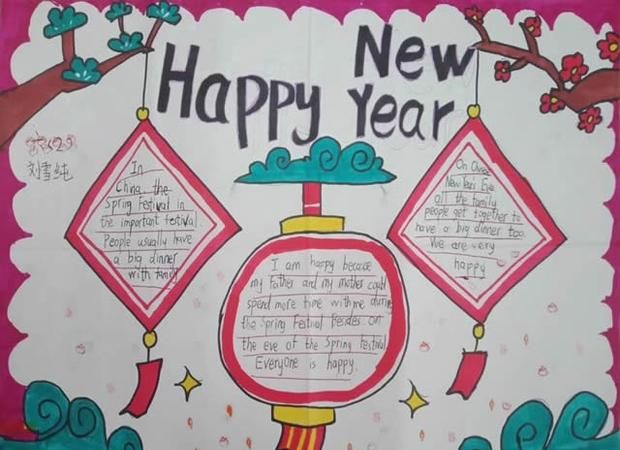 Happy New Year
六429
刘雪纯
In
China, the
Spring Festival in
the important festival.
People usually have
a big dinner
with family
I am happy because
my father and my mother could
spend more time with me during
the Spring Festival Besides on
the eve of the Spring Festival
Everyone is happy.
On Chinese
New Year's Eve
all the family
people get together to
have a big dinner too.
We are very
happy